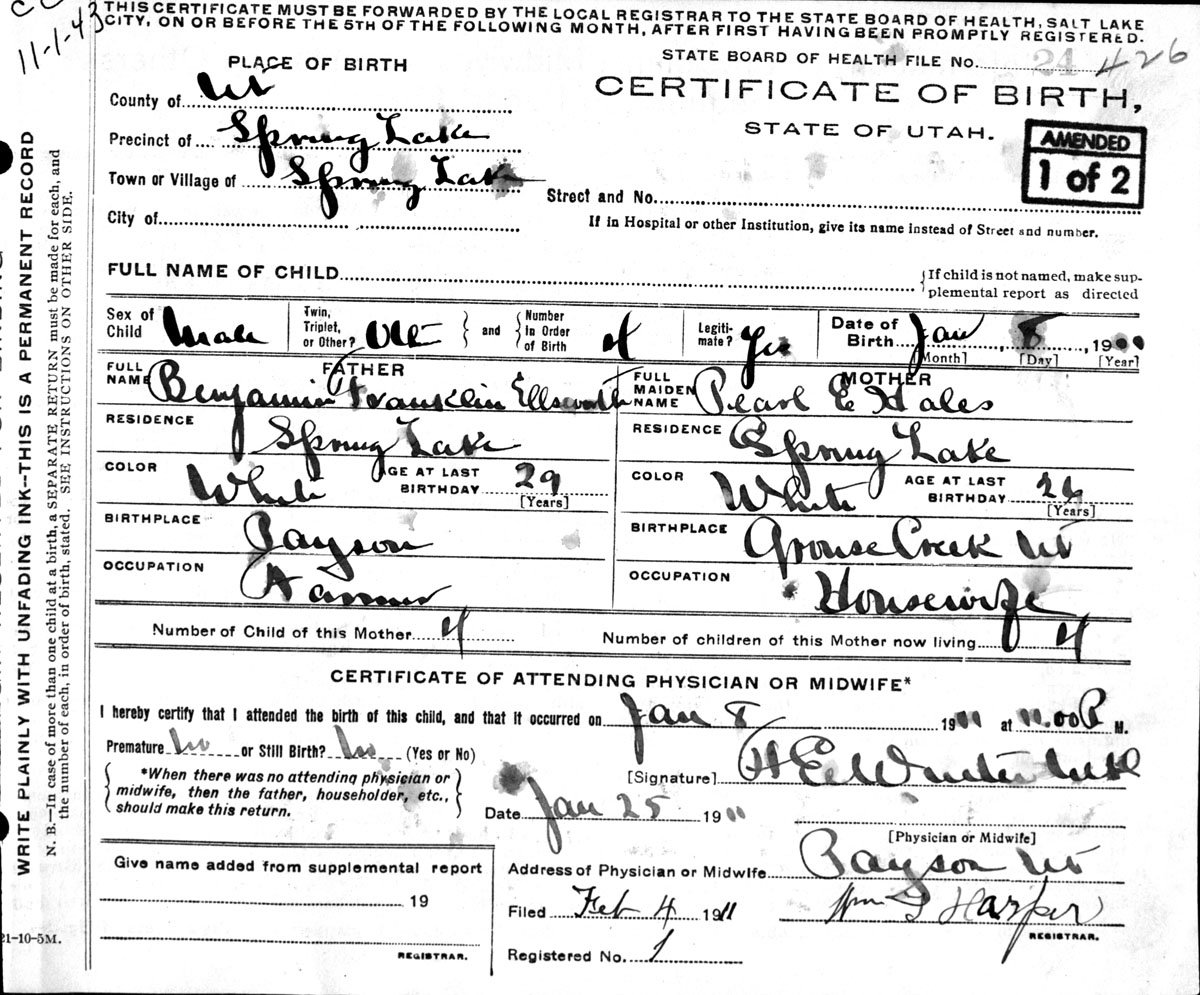 11-1-43
THIS CERTIFICATE MUST BE FORWARDED BY THE LOCAL REGISTRAR TO THE STATE BOARD OF HEALTH, SALT LAKE
CITY, ON OR BEFORE THE 5TH OF THE FOLLOWING MONTH, AFTER FIRST HAVING BEEN PROMPTLY REGISTERED.
STATE BOARD OF HEALTH FILE No. 24 426
PLACE OF BIRTH
CERTIFICATE OF BIRTH,
STATE OF UTAH.
AMENDED
1 of 2
County of Ut
Precinct of Spring Lake
Town or Village of Spring Lake
Street and No.
City of
If in Hospital or other Institution, give its name instead of Street and number.
FULL NAME OF CHILD
{If child is not named, make sup-
plemental report as directed
Sex of Child Male Twin, Triplet, or Other? and Number In Order of Birth 4 Legiti- mate? Yes Date of Birth Jan 8, 19
[Month] [Day] [Year]
FATHER
FULL NAME Benjamin Franklin Ellsworth
MOTHER
FULL MAIDEN NAME Pearl E Hales
RESIDENCE Spring Lake
RESIDENCE Spring Lake
COLOR White AGE AT LAST BIRTHDAY 29 [Years]
COLOR White AGE AT LAST BIRTHDAY 26 [Years]
BIRTHPLACE Payson
BIRTHPLACE Grouse Creek Ut
OCCUPATION Farmer
OCCUPATION Housewife
Number of Child of this Mother 4
Number of children of this Mother now living 4
CERTIFICATE OF ATTENDING PHYSICIAN OR MIDWIFE*
I hereby certify that I attended the birth of this child, and that it occurred on Jan 8 1911 at 11.00 P M.
Premature No or Still Birth? No (Yes or No)
{*When there was no attending physician or
midwife, then the father, householder, etc.,
should make this return.}
[Signature]
Date Jan 25 1911
[Physician or Midwife]
Give name added from supplemental report
19
REGISTRAR.
Address of Physician or Midwife Payson Ut
Filed Feb 4 1911 Wm G Harper
REGISTRAR.
Registered No. 1
21-10-5M.
WRITE PLAINLY WITH UNFADING INK--THIS IS A PERMANENT RECORD
N. B.—In case of more than one child at a birth, a SEPARATE RETURN must be made for each, and
the number of each, in order of birth, stated. SEE INSTRUCTIONS ON OTHER SIDE.